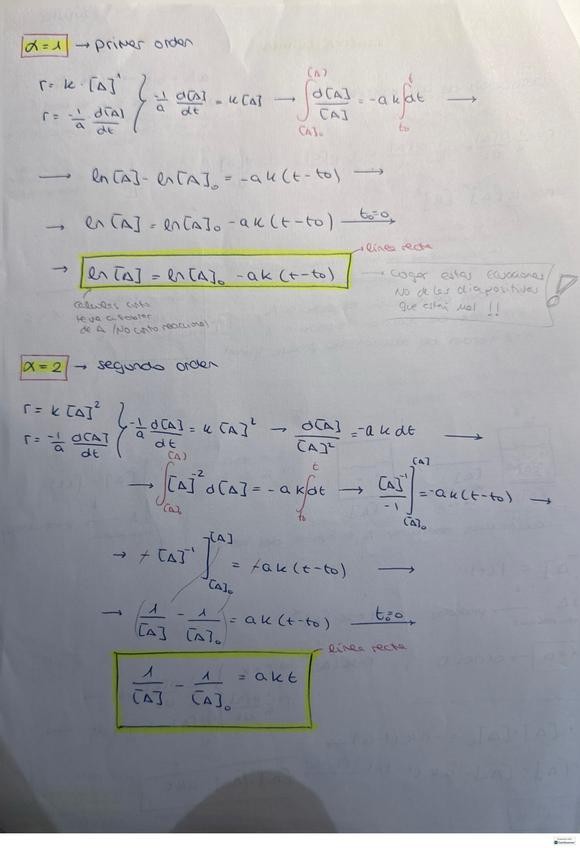 α=1 → primer orden
r = k·[A]¹
r = -1/a d[A]/dt } -1/a d[A]/dt = k[A] → ∫[A]₀^[A] d[A]/[A] = -ak∫t₀^t dt →
→ ln[A] - ln[A]₀ = -ak(t-t₀) →
→ ln[A] = ln[A]₀ - ak(t-t₀) t₀=0→
línea recta
→ ln[A] = ln[A]₀ - ak(t-t₀)
→ coger estas ecuaciones
NO de las diapositivas
que están mal !!
!
de A (No cisto reacciona)
α=2 → segundo orden
r = k[A]²
r = -1/a d[A]/dt } -1/a d[A]/dt = k[A]² → d[A]/[A]² = -ak dt →
→ ∫[A]₀^[A] [A]⁻² d[A] = -ak∫t₀^t dt → [A]⁻¹/-1 ][A]₀^[A] = -ak(t-t₀) →
→ -[A]⁻¹ ][A]₀^[A] = -ak(t-t₀) →
→ (1/[A] - 1/[A]₀) = ak(t-t₀) t₀=0→
línea recta
1/[A] - 1/[A]₀ = akt
CamScanner